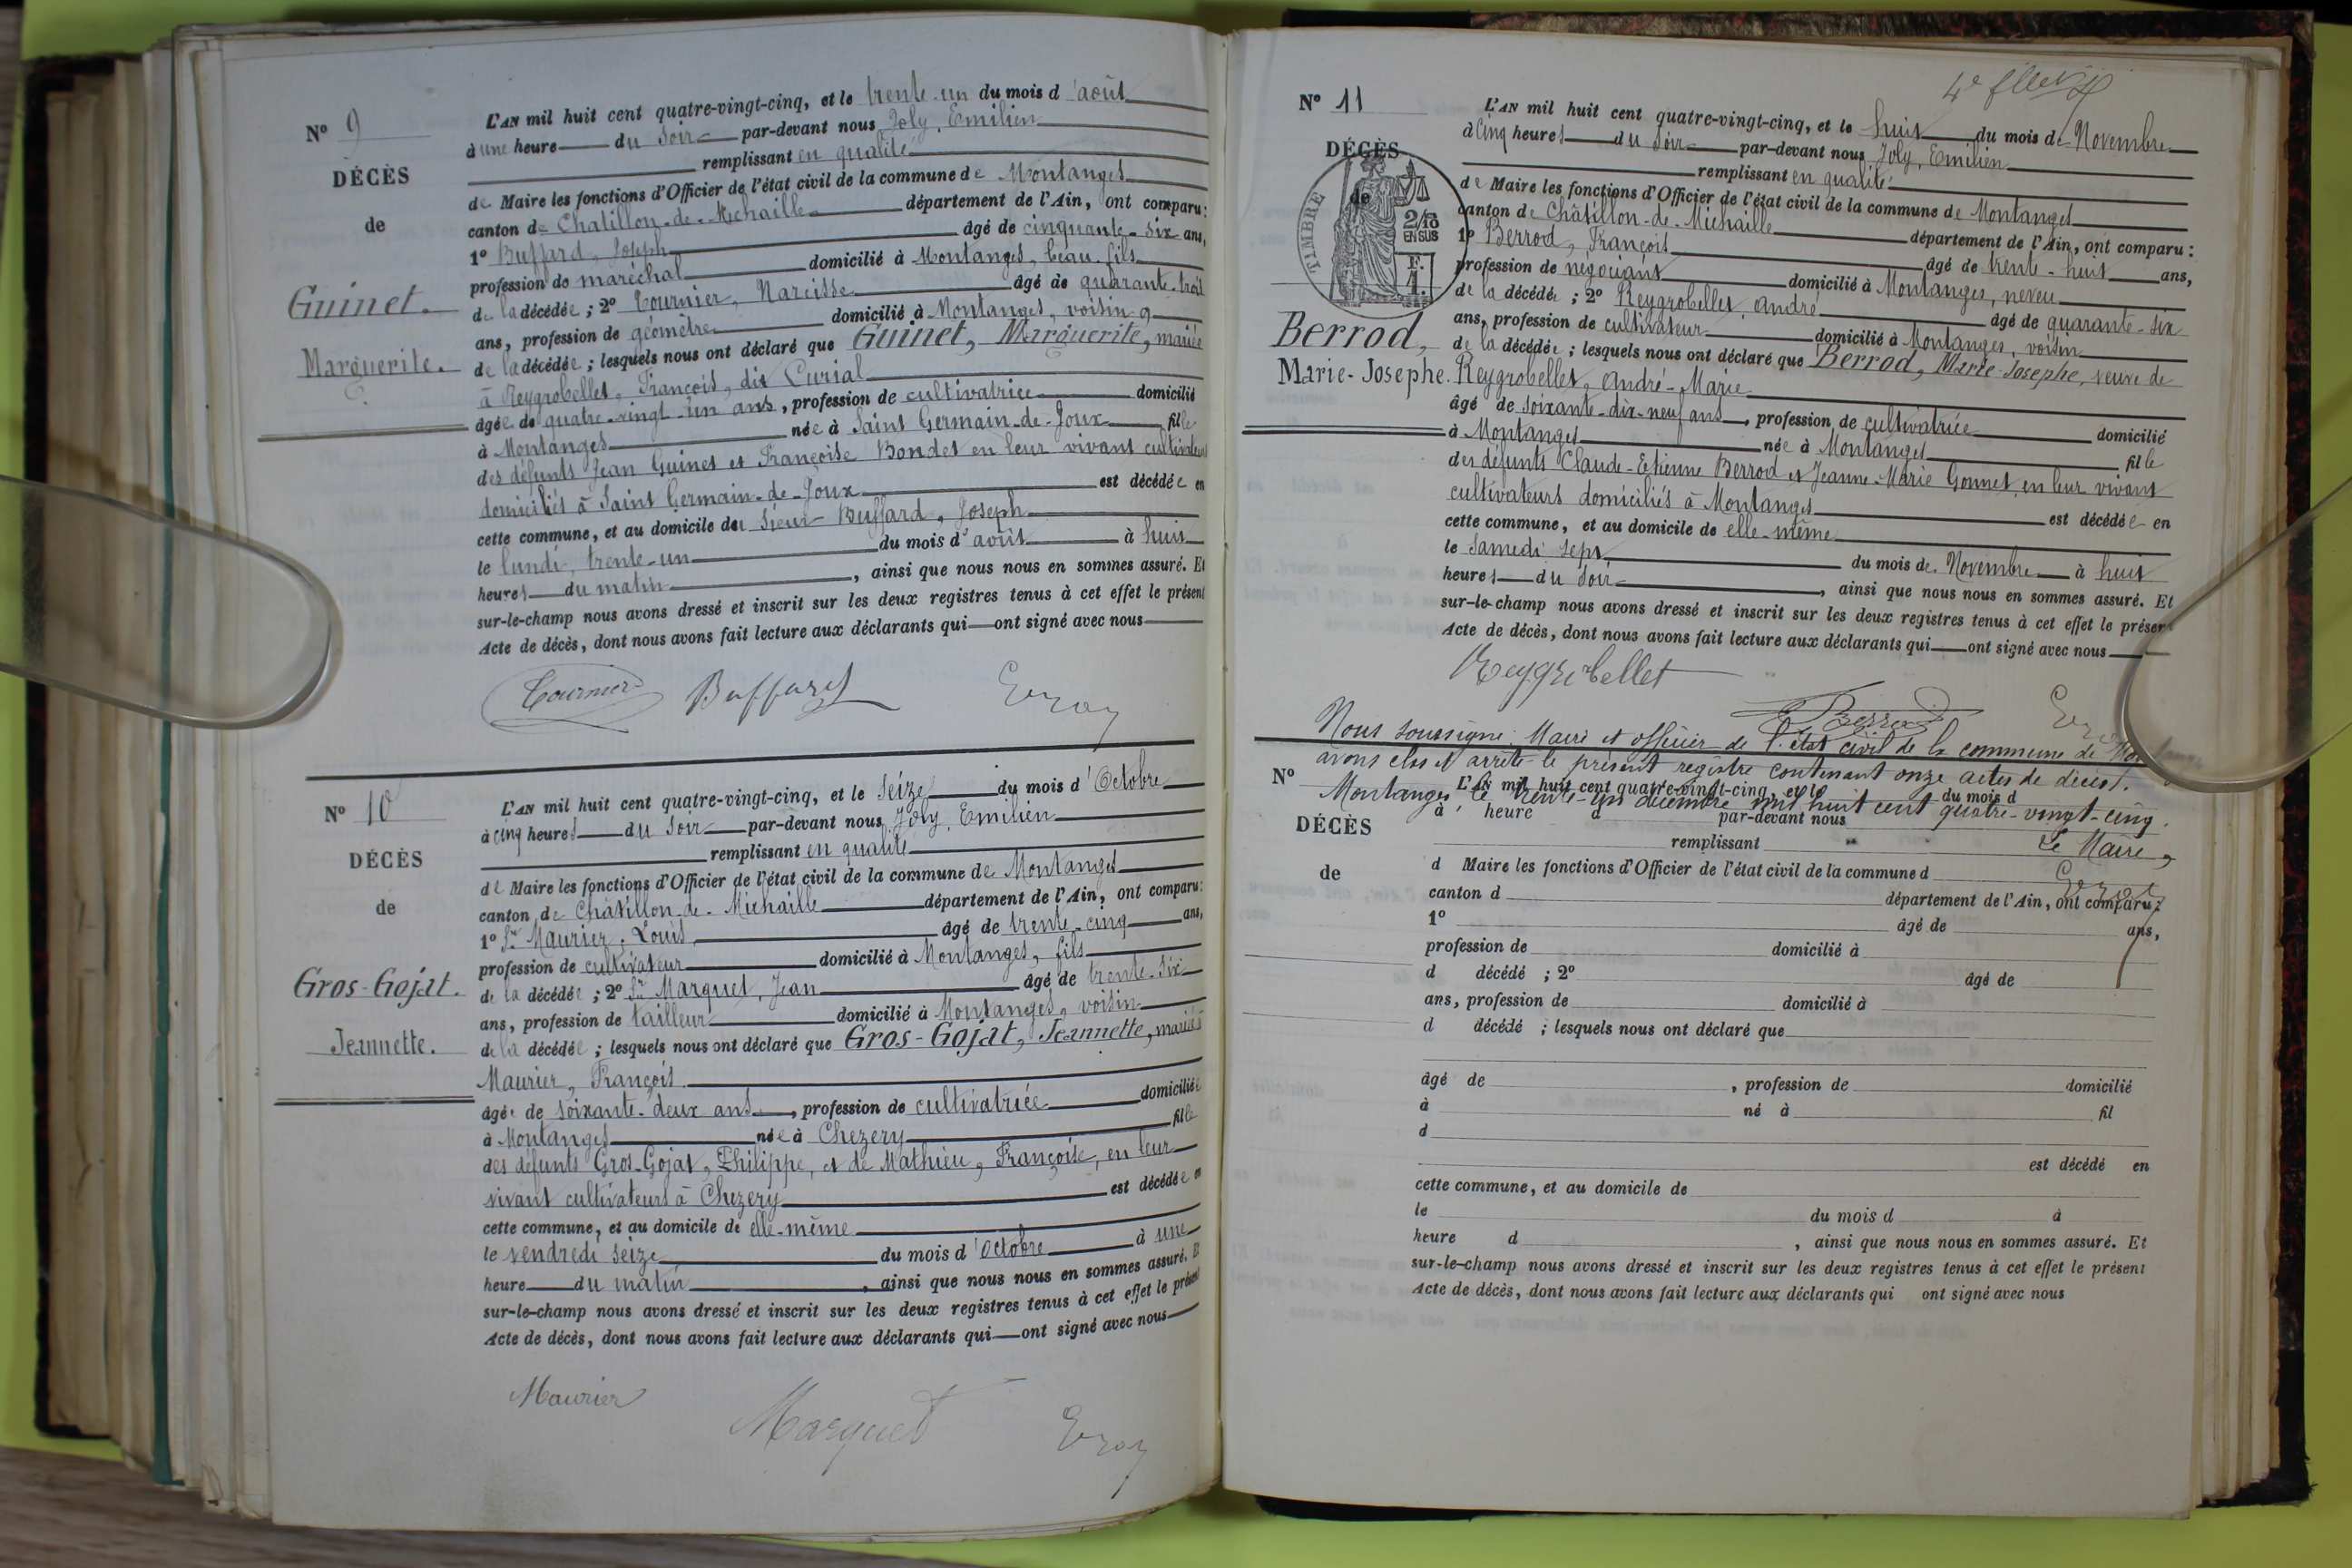 N° 9
DÉCÈS
de
Guinet.
Marguerite.
L'AN mil huit cent quatre-vingt-cinq, et le trente-un du mois d'août
à une heure du soir par-devant nous Joly, Emilien
remplissant en qualité
de Maire les fonctions d'Officier de l'état civil de la commune de Montanges
canton de Chatillon-de-Michaille département de l'Ain, ont comparu:
1° Buffard, Joseph âgé de cinquante-six ans,
profession de maréchal domicilié à Montanges, beau-fils
de la décédée; 2° Tournier, Narcisse âgé de quarante-trois
ans, profession de géomètre domicilié à Montanges, voisin
de la décédée; lesquels nous ont déclaré que Guinet, Marguerite, mariée
à Reygrobellet, François, dit Curial
âgée de quatre-vingt-un ans, profession de cultivatrice domicilié
à Montanges née à Saint Germain-de-Joux fille
des défunts Jean Guinet et Françoise Bondet en leur vivant cultivateurs
domiciliés à Saint Germain-de-Joux est décédée en
cette commune, et au domicile de sieur Buffard, Joseph
le lundi, trente-un du mois d'août à huit
heures du matin, ainsi que nous nous en sommes assuré. Et
sur-le-champ nous avons dressé et inscrit sur les deux registres tenus à cet effet le présent
Acte de décès, dont nous avons fait lecture aux déclarants qui ont signé avec nous
Tournier Buffard
N° 10
DÉCÈS
de
Gros-Gojat.
Jeannette.
L'AN mil huit cent quatre-vingt-cinq, et le seize du mois d'Octobre
à cinq heures du soir par-devant nous Joly, Emilien
remplissant en qualité
de Maire les fonctions d'Officier de l'état civil de la commune de Montanges
canton de Châtillon-de-Michaille département de l'Ain, ont comparu:
1° Sr Maurier, Louis, âgé de trente-cinq ans,
profession de cultivateur domicilié à Montanges, fils
de la décédée; 2° Sr Marquet, Jean âgé de trente-six
ans, profession de tailleur domicilié à Montanges, voisin
de la décédée; lesquels nous ont déclaré que Gros-Gojat, Jeannette, mariée à
Maurier, François
âgée de soixante-deux ans, profession de cultivatrice domiciliée
à Montanges née à Chezery fille
des défunts Gros-Gojat, Philippe, et de Mathieu, Françoise, en leur
vivant cultivateurs à Chezery est décédée en
cette commune, et au domicile de elle-même
le vendredi seize du mois d'Octobre à une
heure du matin, ainsi que nous nous en sommes assuré. Et
sur-le-champ nous avons dressé et inscrit sur les deux registres tenus à cet effet le présent
Acte de décès, dont nous avons fait lecture aux déclarants qui ont signé avec nous
Maurier Marquet
N° 11
DÉCÈS
de
TIMBRE
2/10
EN SUS
F.
1.
Berrod,
Marie-Josephe.
L'AN mil huit cent quatre-vingt-cinq, et le huit du mois de Novembre
à cinq heures du soir par-devant nous Joly, Emilien
remplissant en qualité
de Maire les fonctions d'Officier de l'état civil de la commune de Montanges
canton de Châtillon-de-Michaille département de l'Ain, ont comparu:
1° Berrod, François âgé de trente-huit ans,
profession de négociant domicilié à Montanges, neveu
de la décédée; 2° Reygrobellet, André âgé de quarante-six
ans, profession de cultivateur domicilié à Montanges, voisin
de la décédée; lesquels nous ont déclaré que Berrod, Marie-Josephe, veuve de
Reygrobellet, André-Marie
âgé de soixante-dix-neuf ans, profession de cultivatrice domicilié
à Montanges née à Montanges fille
des défunts Claude-Etienne Berrod et Jeanne-Marie Gonnet, en leur vivant
cultivateurs domiciliés à Montanges est décédée en
cette commune, et au domicile de elle-même
le samedi sept du mois de Novembre à huit
heures du soir, ainsi que nous nous en sommes assuré. Et
sur-le-champ nous avons dressé et inscrit sur les deux registres tenus à cet effet le présent
Acte de décès, dont nous avons fait lecture aux déclarants qui ont signé avec nous
Reygrobellet
Berrod
Nous soussigné, Maire et officier de l'état civil de la commune de
avons clos et arrêté le présent registre contenant onze actes de décès.
Montanges le trente-un décembre mil huit cent quatre-vingt-cinq.
Le Maire,
N°
DÉCÈS
de
L'AN mil huit cent quatre-vingt-cinq, et le du mois d
à heure d par-devant nous
remplissant
d Maire les fonctions d'Officier de l'état civil de la commune d
canton d département de l'Ain, ont comparu:
1° âgé de ans,
profession de domicilié à
d décédé ; 2° âgé de
ans, profession de domicilié à
d décédé ; lesquels nous ont déclaré que
âgé de , profession de domicilié
à né à fil
d
est décédé en
cette commune, et au domicile de
le du mois d à
heure d , ainsi que nous nous en sommes assuré. Et
sur-le-champ nous avons dressé et inscrit sur les deux registres tenus à cet effet le présent
Acte de décès, dont nous avons fait lecture aux déclarants qui ont signé avec nous